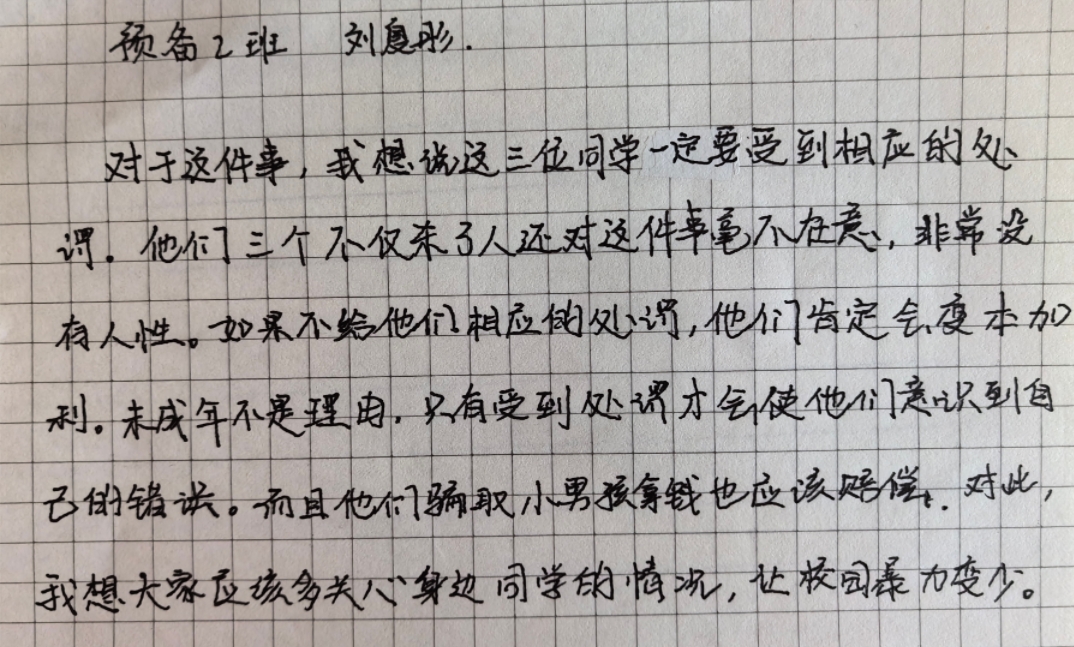 预备2班 刘夏彤.
对于这件事，我想说这三位同学一定要受到相应的处
罚。他们三个不仅杀了人还对这件事毫不在意，非常没
有人性。如果不给他们相应的处罚，他们肯定会变本加
利。未成年不是理由，只有受到处罚才会使他们意识到自
己的错误。而且他们骗取小男孩拿钱也应该赔偿。对此，
我想大家应该多关心身边同学的情况，让校园暴力变少。